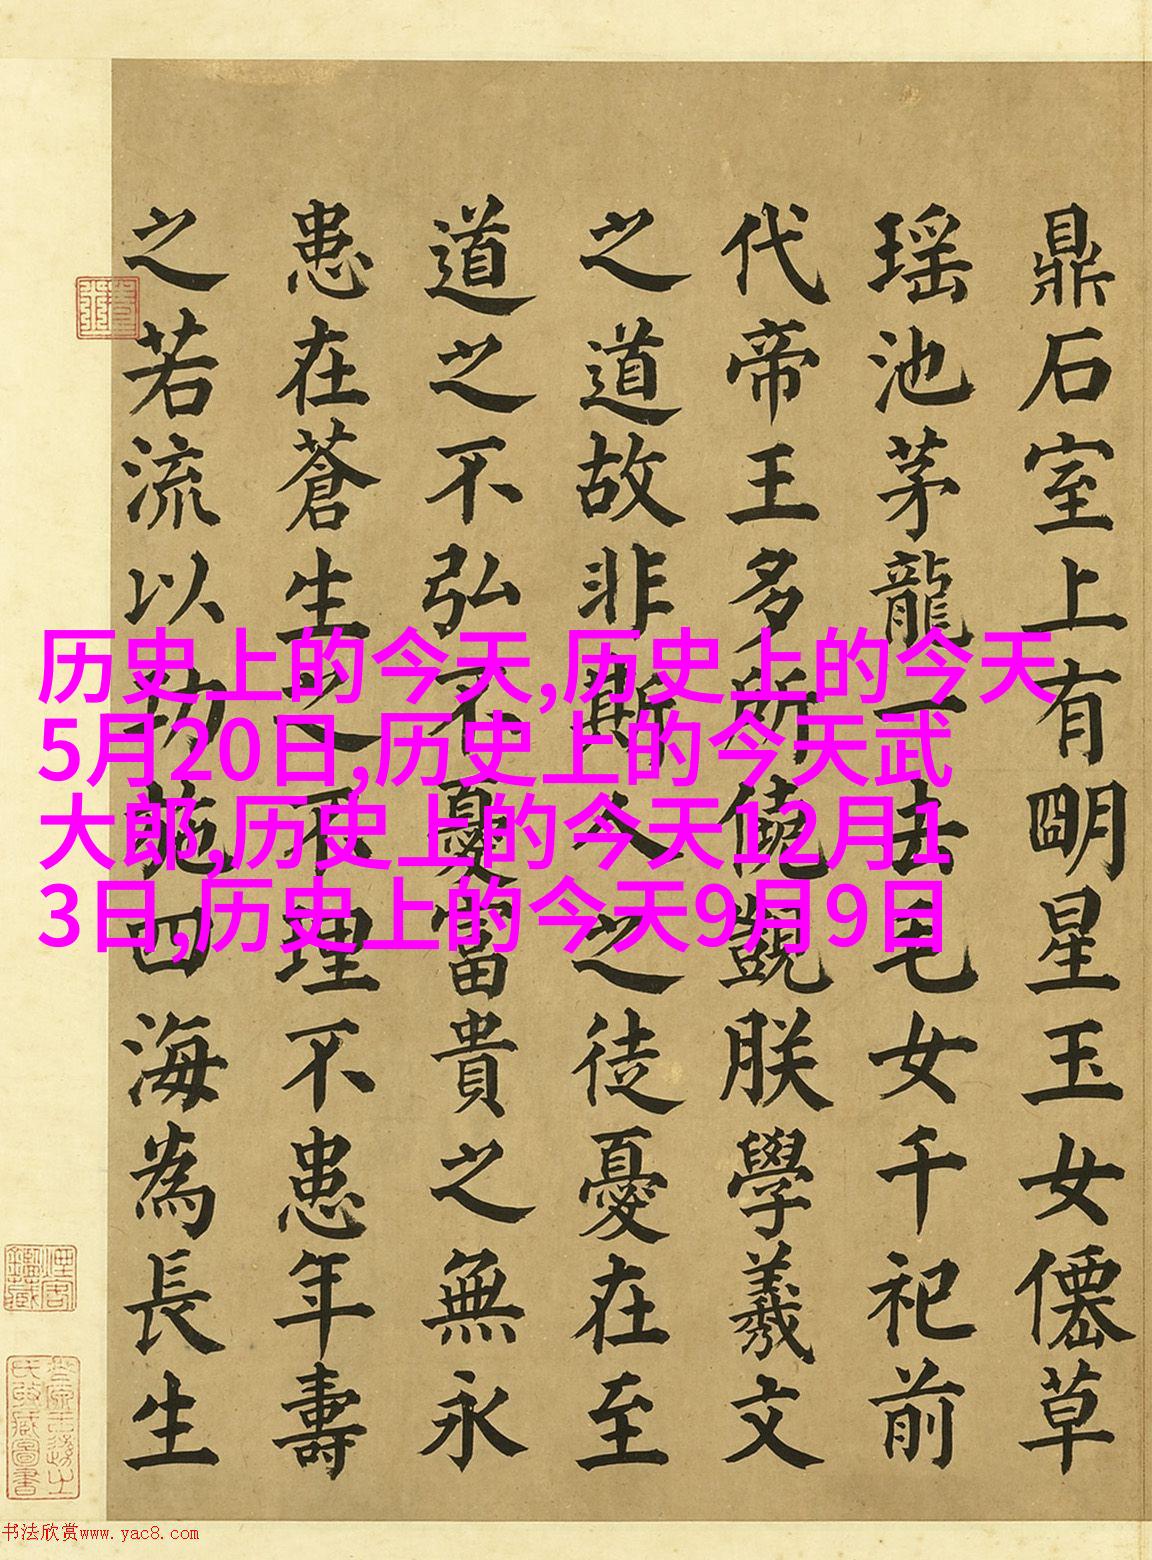 鼎石室上有朙星玉女僊草
瑶池茅龍一去毛女千祀前
代帝王多所僥覬朕學羲文
之道故非斯人之徒憂在至
道之不弘不憂富貴之無永
患在蒼生之不理不患年壽
之若流以功施四海為長生
历史上的今天,历史上的今天
5月20日,历史上的今天武
大郎,历史上的今天12月1
3日,历史上的今天9月9日
书法欣赏www.yac8.com